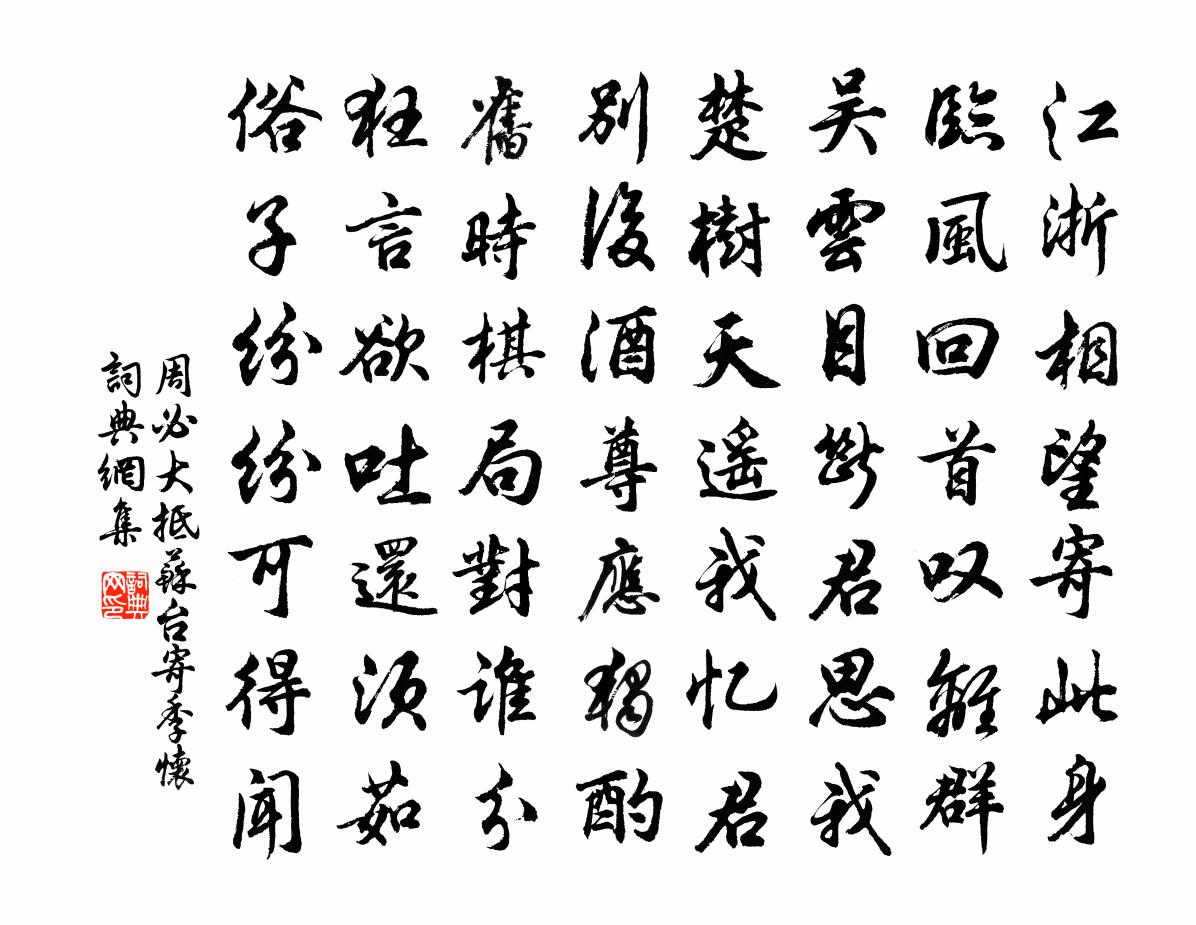 江浙相望寄此身
臨風回首叹離群
吴雲目斷君思我
楚樹天遥我忆君
別後酒尊應獨酌
舊時棋局對誰分
狂言欲吐還须茹
俗子紛紛可得闻
周必大抵蘇台寄季懷
詞典網集
詞典网印